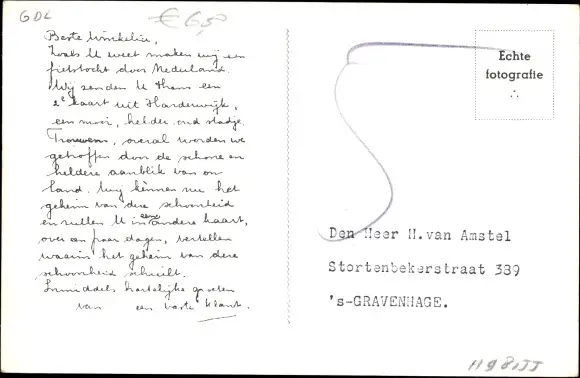 GDL
€ 6,5
Beste Winkelier,
Zoals U weet maken wij een
fietstocht door Nederland.
Wij zenden U thans een
2e kaart uit Harderwijk,
een mooi, helder oud stadje.
Trouwens, overal worden we
getroffen door de schone en
heldere aanblik van on
land. Wij kennen nu het
geheim van deze schoonheid
en zullen U in een andere kaart,
over een paar dagen, vertellen
waarin het geheim van deze
schoonheid schuilt.
Inmiddels hartelijke groeten
van een vaste klant.
Echte
fotografie
Den Heer H.van Amstel
Stortenbekerstraat 389
's-GRAVENHAGE.